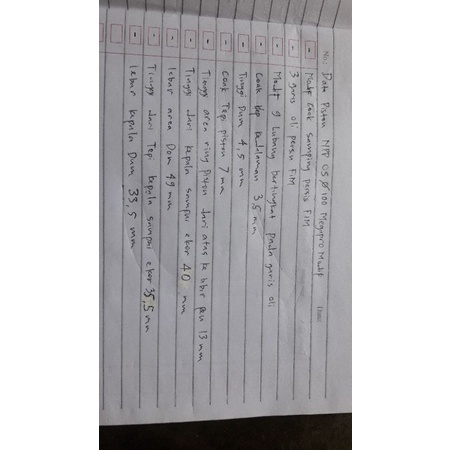 No: Data Piston NPP OS Ø 100 Megapro Modif
Date:
- Modif Coak samping persis FIM
- 3 garis oli persis FIM
- Modif 9 Lubang bertingkat pada garis oli
- Coak klep kedalaman 3,5 mm
- Tinggi Dum 4,5 mm
- Coak Tepi piston 7 mm
- Tinggi area ring Piston dari atas ke bibir pen 13 mm
- Tinggi dari kepala sampai ekor 40 mm
- lebar area Dom 49 mm
- Tinggi dari Tepi kepala sampai ekor 35,5 mm
- lebar kepala Dum 33,5 mm